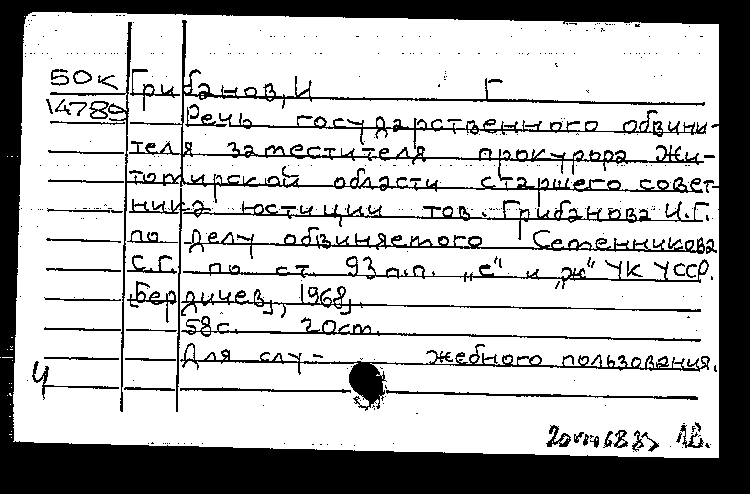 50к Грибанов, И Г
14789 Речь государственного обвини-
теля заместителя прокурора Жи-
томирской области старшего совет-
ника юстиции тов. Грибанова И.Г.
по делу обвиняемого Семенникова
С.Г. по ст. 93 п.п. „е“ и „ж“ УК УССР.
[Бердичев], 1968].
58с. 20см.
Для слу- жебного пользования.
Ч